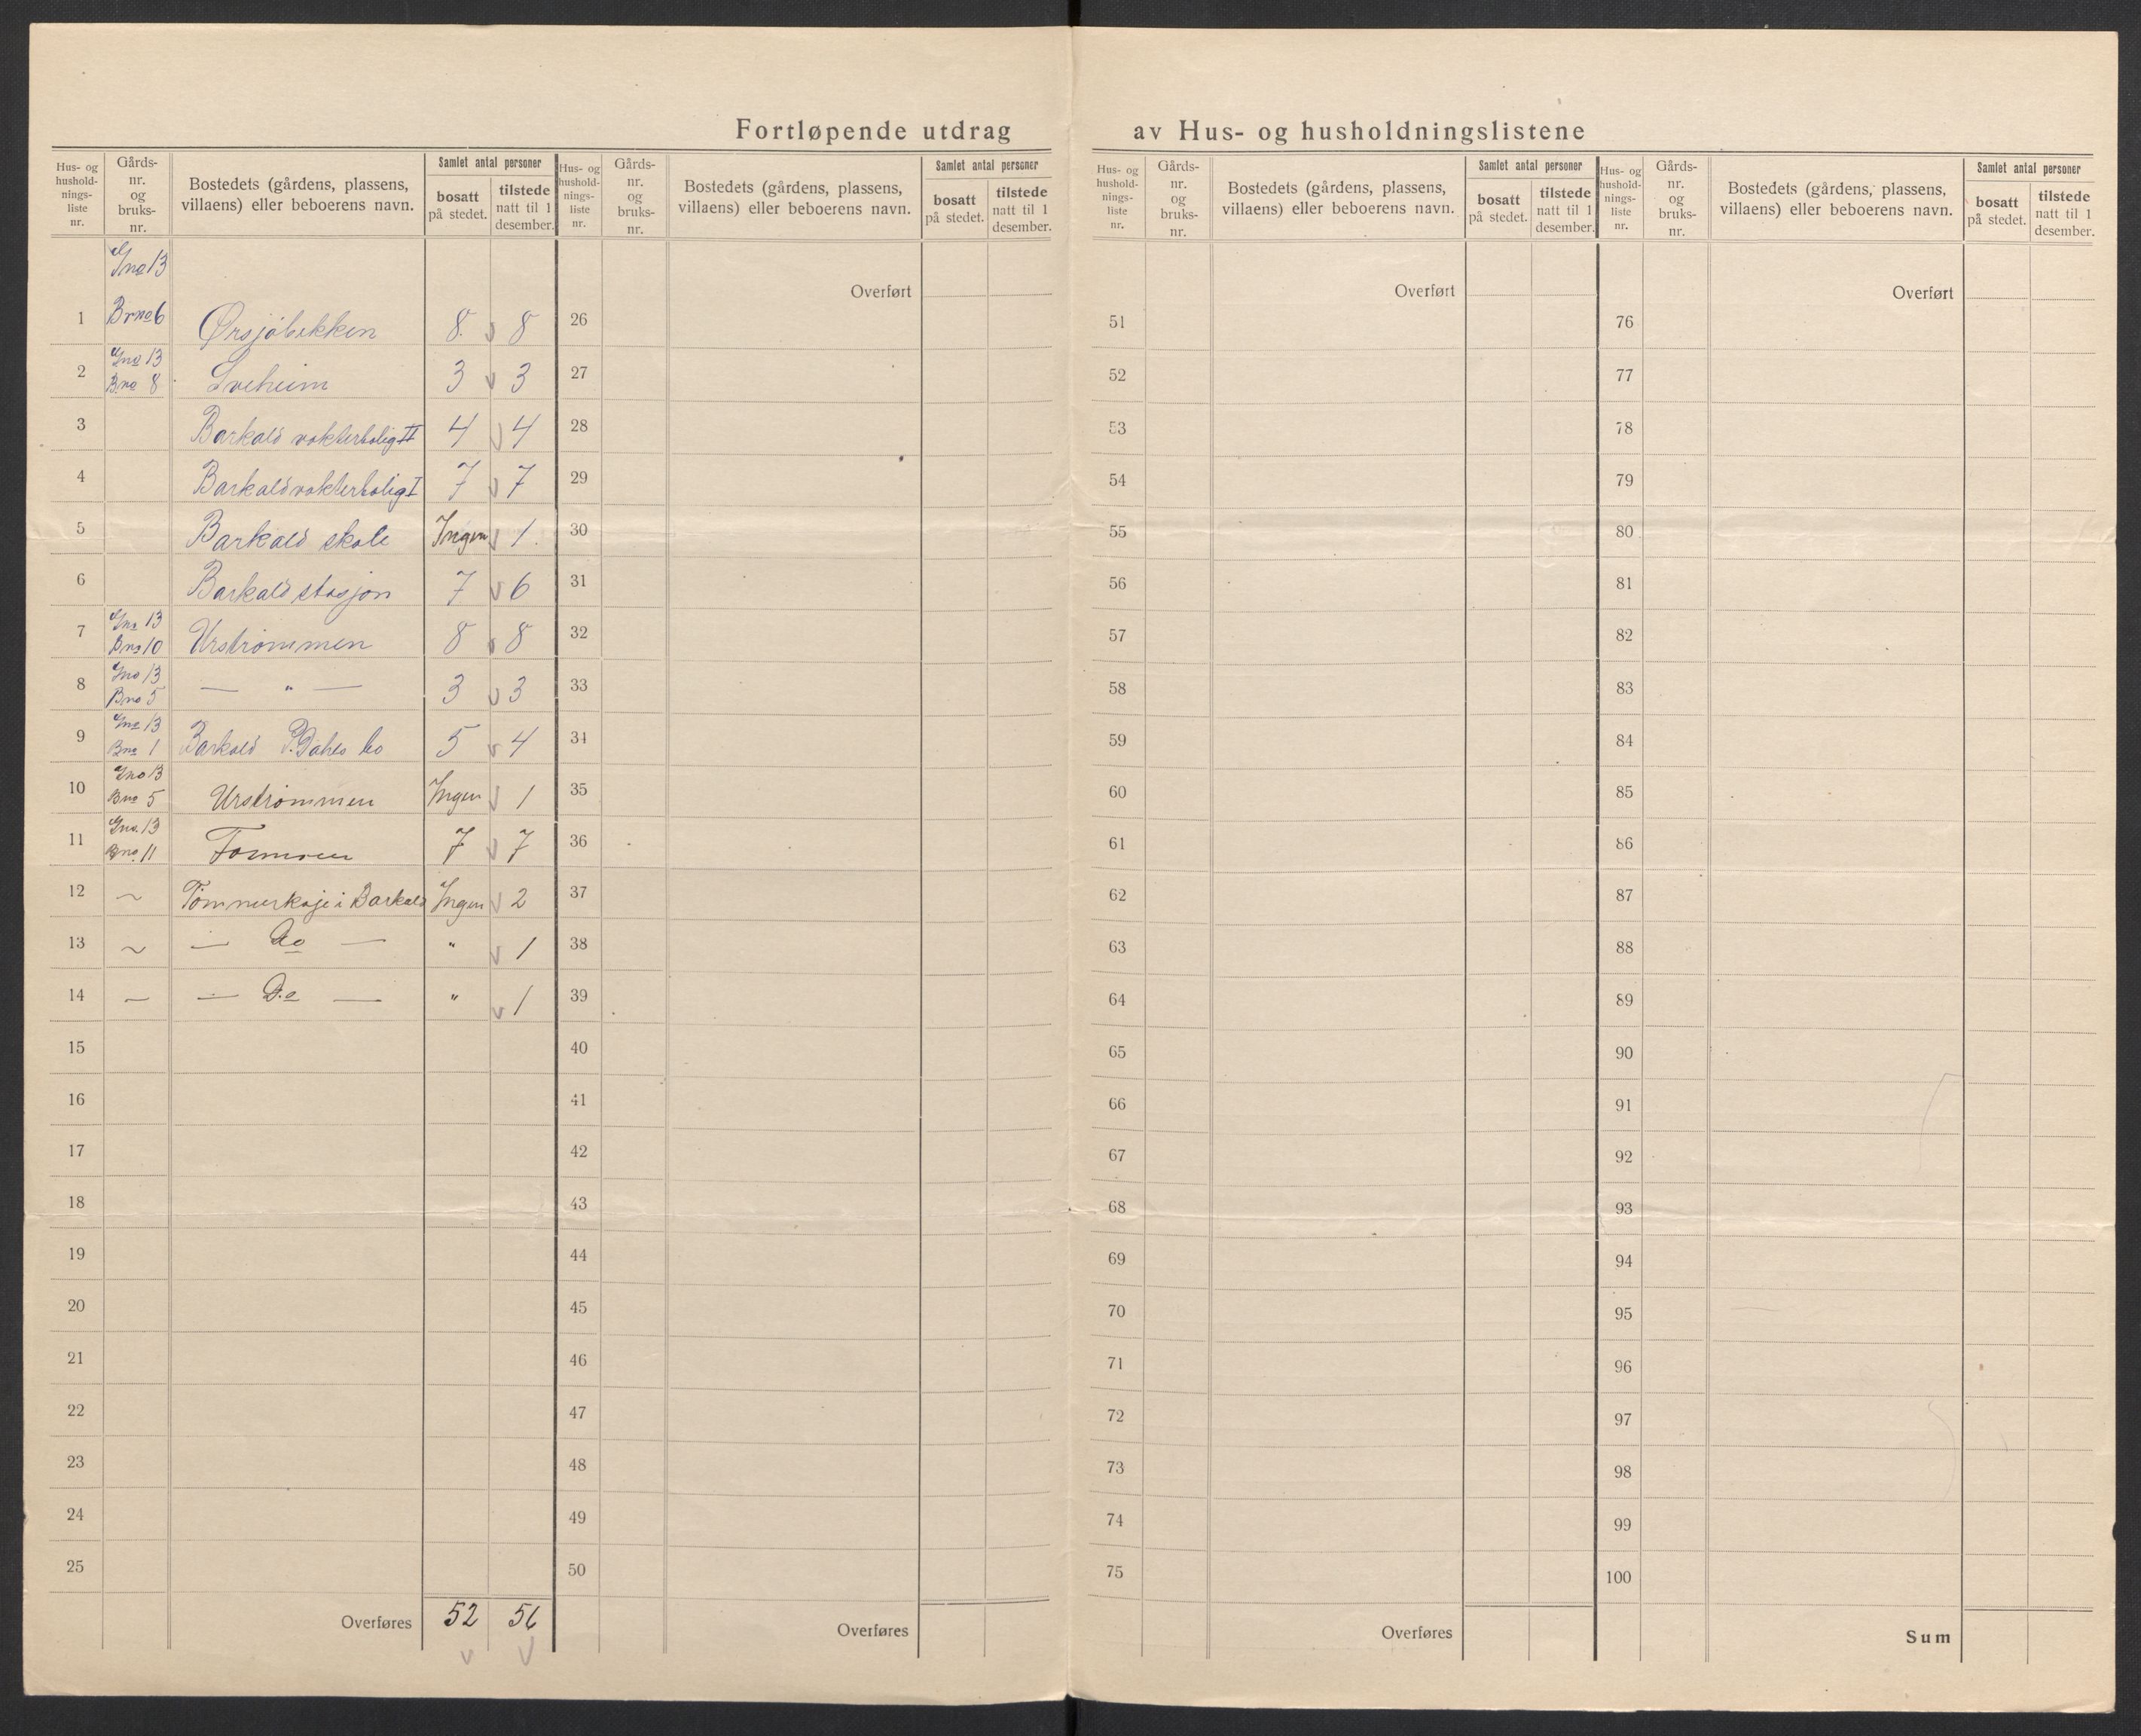 Fortløpende utdrag av Hus- og husholdningslistene
Hus- og hushold- nings- liste nr.
Gårds- nr. og bruks- nr.
Bostedets (gårdens, plassens, villaens) eller beboerens navn.
Samlet antal personer
bosatt på stedet.
tilstede natt til 1 desember.
Hus- og hushold- nings- liste nr.
Gårds- nr. og bruks- nr.
Bostedets (gårdens, plassens, villaens) eller beboerens navn.
Samlet antal personer
bosatt på stedet.
tilstede natt til 1 desember.
Hus- og hushold- nings- liste nr.
Gårds- nr. og bruks- nr.
Bostedets (gårdens, plassens, villaens) eller beboerens navn.
Samlet antal personer
bosatt på stedet.
tilstede natt til 1 desember.
Hus- og hushold- nings- liste nr.
Gårds- nr. og bruks- nr.
Bostedets (gårdens, plassens, villaens) eller beboerens navn.
Samlet antal personer
bosatt på stedet.
tilstede natt til 1 desember.
Gno 13
1 Brno 6 Ørsjøbekken 8 v 8
2 Gno 13 Bno 8 Sveheim 3 v 3
3 Barkald vokterbolig II 4 v 4
4 Barkald vokterbolig I 7 v 7
5 Barkald skole Ingen v 1
6 Barkald stasjon 7 v 6
7 Gno 13 Bno 10 Urstrømmen 8 v 8
8 Gno 13 Bno 5 — " — 3 v 3
9 Gno 13 Bno 1 Barkald P. Dahls bo 5 v 4
10 Gno 13 Bno 5 Urstrømmen Ingen v 1
11 Gno. 13 Bno. 11 7 v 7
12 ~ Tømmerkoje i Barkald Ingen v 2
13 ~ — Do — " v 1
14 — — Do — " v 1
15
16
17
18
19
20
21
22
23
24
25
Overføres 52 56
v v
Overført
26
27
28
29
30
31
32
33
34
35
36
37
38
39
40
41
42
43
44
45
46
47
48
49
50
Overføres
Overført
51
52
53
54
55
56
57
58
59
60
61
62
63
64
65
66
67
68
69
70
71
72
73
74
75
Overføres
Overført
76
77
78
79
80
81
82
83
84
85
86
87
88
89
90
91
92
93
94
95
96
97
98
99
100
Sum